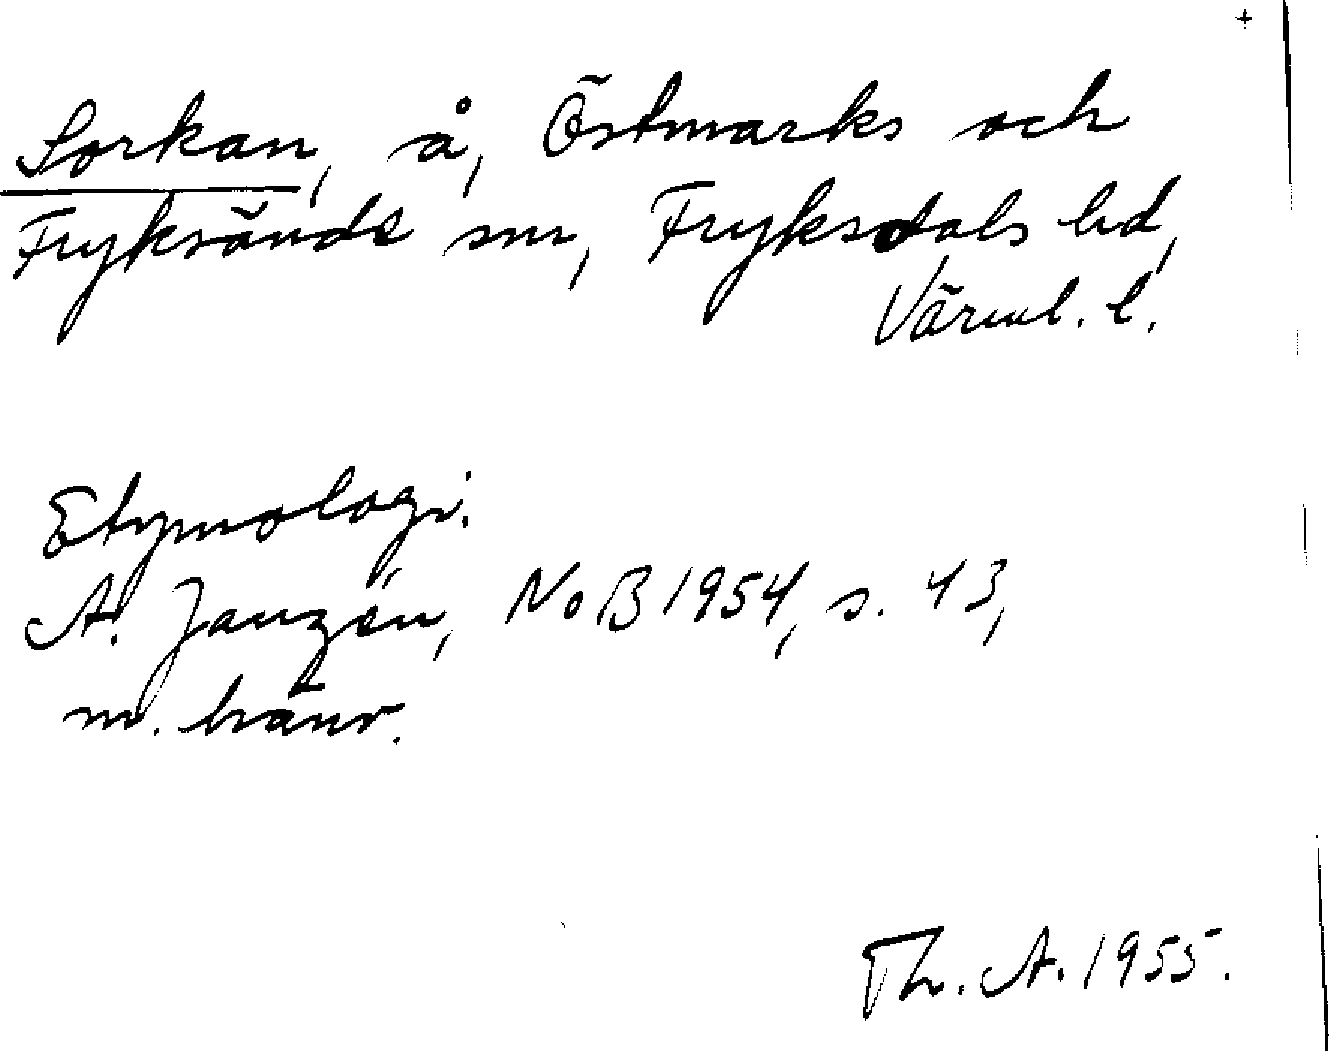 Sorkan, å, Östmarks och
Fryksände snr, Fryksdals hd,
Värml. l.
Etymologi.
A. Janzén, NoB 1954, s. 43,
m. hänv.
Th. A. 1955.